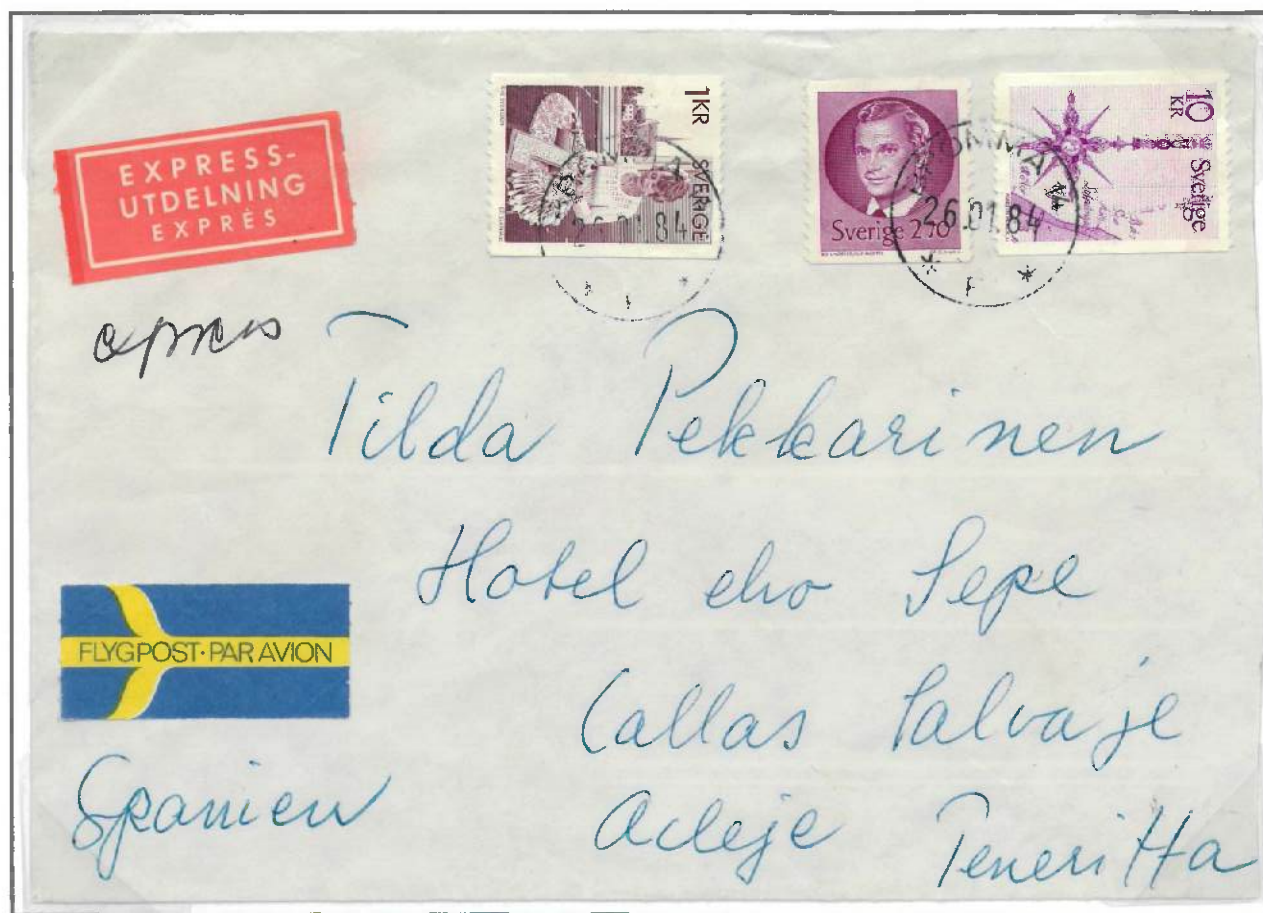 EXPRESS-
UTDELNING
EXPRÈS
1 KR
SVERIGE
26.01.84
Sverige 270
BROMMA 14
26.01.84
10
KR
Sverige
expres
Tilda Pekkarinen
Hotel eho Sepe
Callas Salvaje
Adeje Teneriffa
FLYGPOST·PAR AVION
Spanien